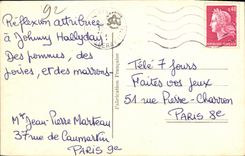 92
Réflexion attribuée
à Johnny Hallyday:
Des pommes, des
poires, et des marrons-
Mr Jean-Pierre Marteau
37 rue de Caumartin
PARIS 9e
Fabrication Française
0,40
Télé 7 Jours
Faites vos jeux
51 rue Pierre-Charron
PARIS 8e